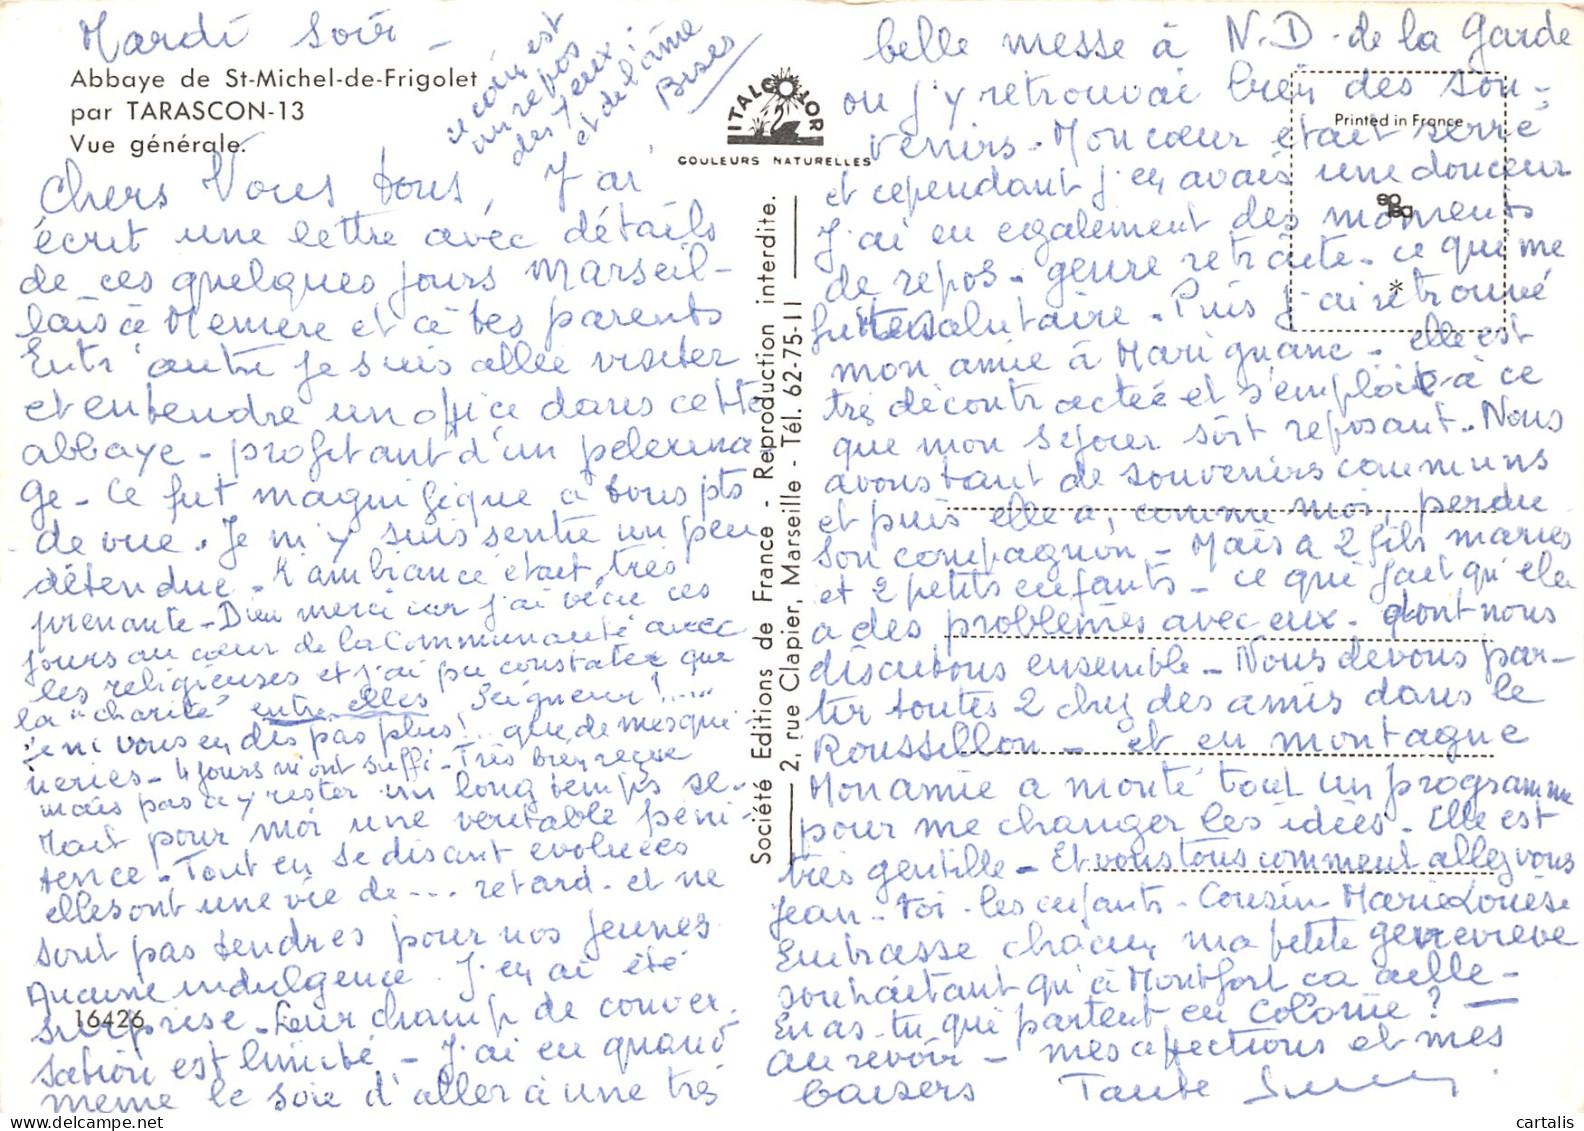 Mardi soir -
Abbaye de St-Michel-de-Frigolet
par TARASCON-13
Vue générale.
ce coin est
un repos
des yeux -
et de l'âme
Bises
ITALCOLOR
COULEURS NATURELLES
Printed in France
Chers Vous tous, J'ai
écrit une lettre avec détails
de ces quelques jours marseil-
lais à Memere et à tes parents
Entr'autre je suis allée visiter
et entendre un office dans cette
abbaye - profitant d'un pelerina
ge - Ce fut magnifique à tous pts
de vue. Je m'y suis sentie un peu
détendue - L'ambiance était très
prenante - Dieu merci car j'ai vécu ces
jours au cœur de la Communauté avec
les religieuses et j'ai pu constater que
la "charité" entre elles Seigneur !.....
je ne vous en dis pas plus ! que de mesqui
neries - 4 jours m'ont suffi - Très bien reçue
mais pas à y rester un long temps se-
rait pour moi une veritable péni-
tence - Tout en se disant evoluées
elles ont une vie de --- retard - et ne
sont pas tendres pour nos jeunes
Aucune indulgence. J'en ai été
surprise - Leur champ de conver
16426
sation est limité - J'ai eu quand
meme la joie d'aller à une très
Société Editions de France - Reproduction interdite.
2, rue Clapier, Marseille - Tél. 62-75-11
belle messe à N.D. de la Garde
ou j'y retrouvai bien des sou-
venirs - Mon cœur etait serré
et cependant j'en avais une douceur
J'ai eu egalement des moments
de repos - genre retraite - ce qui me
fut salutaire - Puis j'ai retrouvé
mon amie à Marignane - elle est
très décontractée et s'emploie à ce
que mon sejour soit reposant - Nous
avons tant de souvenirs communs
et puis elle a, comme moi, perdu
son compagnon - Mais a 2 fils mariés
et 2 petits enfants - ce qui fait qu'elle
a des problèmes avec eux - dont nous
discutons ensemble - Nous devons par-
tir toutes 2 chez des amis dans le
Roussillon - et en montagne
Mon amie a monté tout un programme
pour me changer les idées - Elle est
très gentille - Et vous tous comment allez vous
Jean - toi - les enfants - Cousin Marie Louise
Embrasse chacun, ma petite genevieve
souhaitant qu'à Montfort ca aille -
En as-tu qui partent en Colonie ? -
au revoir - mes affections et mes
baisers Tante